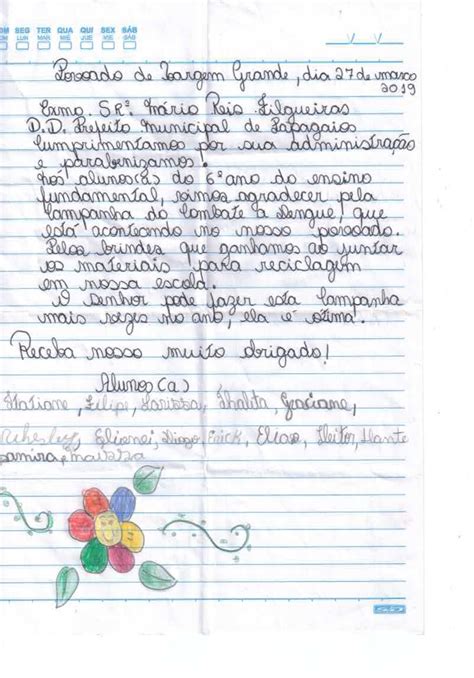 DOM SEG TER QUA QUI SEX SÁB
DOM LUN MAR MIÉ JUE VIE SÁB
Povoado de Vargem Grande, dia 27 de março
2019
Exmo. SRº. Mário Reis Filgueiras
D.D. Prefeito Municipal de Papagaios
Cumprimentamos por sua administração
e parabenizamos.
Nós alunos(a)s do 6º ano do ensino
fundamental, vamos agradecer pela
Campanha do Combate a Dengue, que
está acontecendo no nosso povoado.
Pelos brindes que ganhamos ao juntar
os materiais para reciclagem
em nossa escola.
O Senhor pode fazer esta Campanha
mais vezes no ano, ela é otima!
Receba nosso muito obrigado!
Alunos(a)
Tatiane, Filipe, Larissa, Thalita, Graciane,
Elienei, Diogo, Erick, Heitor,